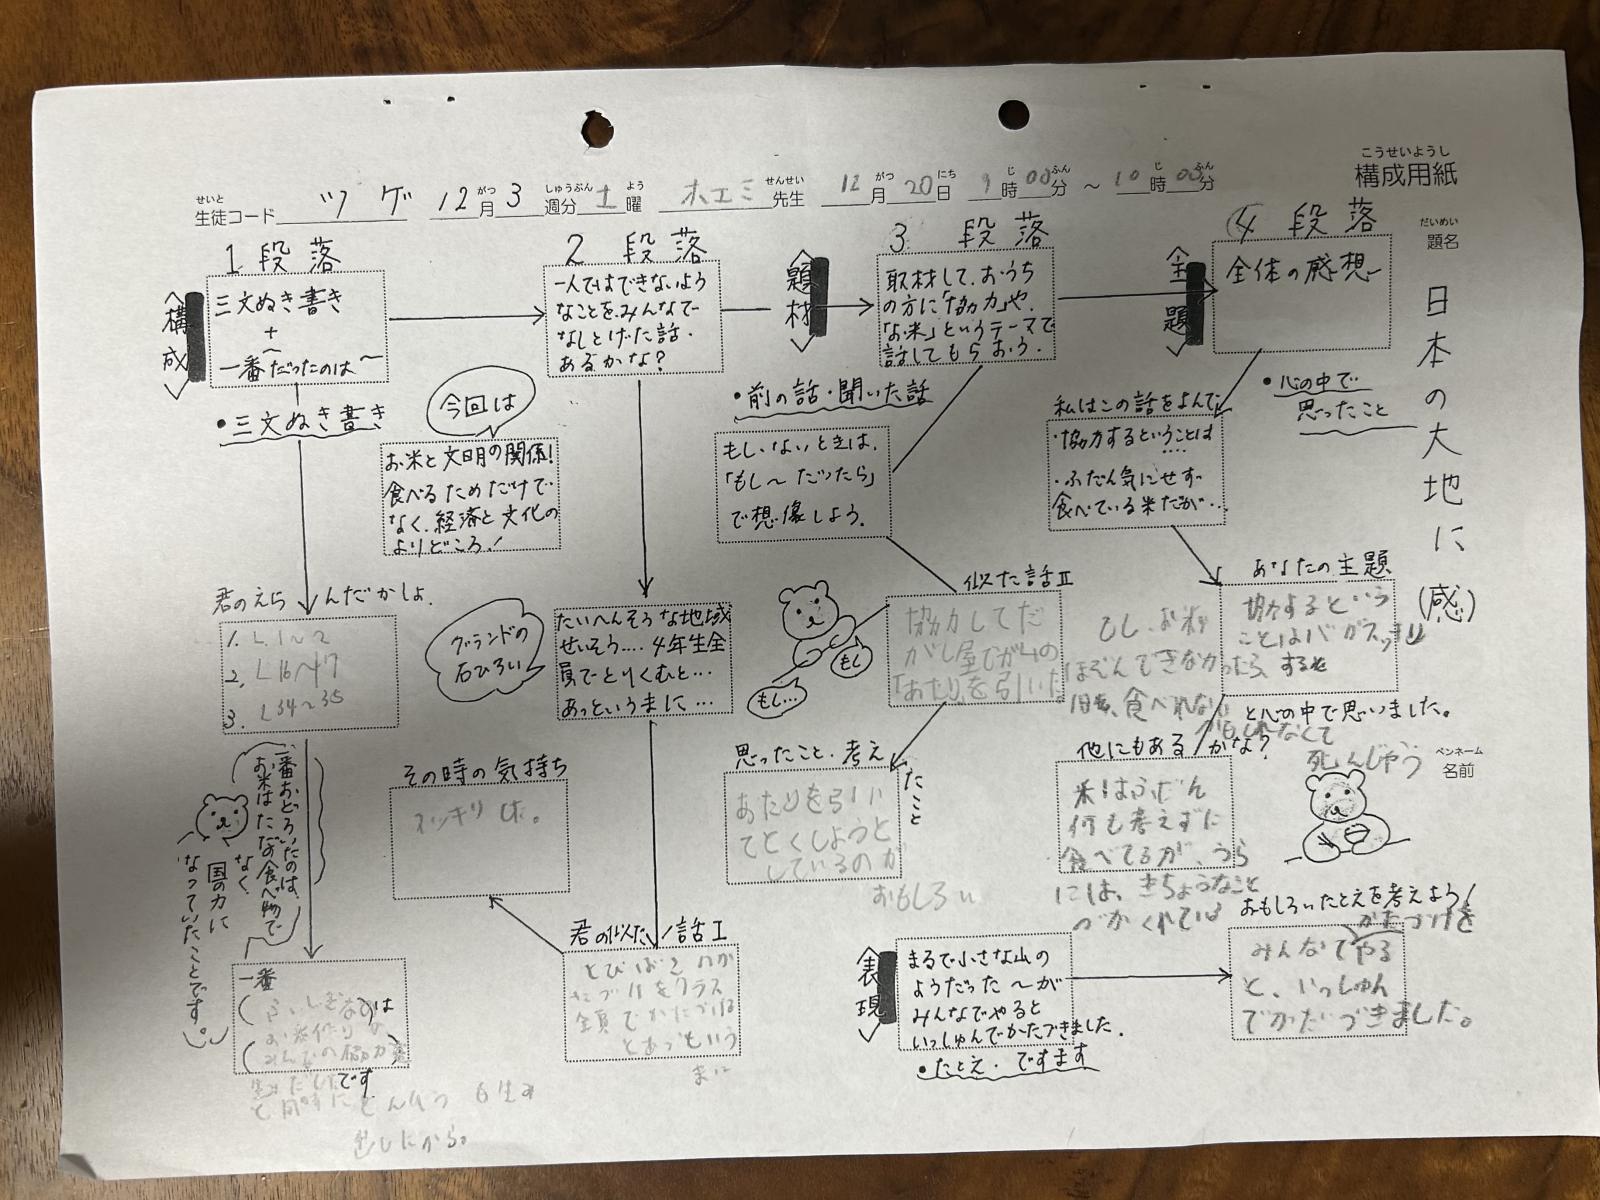 こうせいようし
構成用紙
せいと
生徒コード ツゲ 12月3週分 土曜 ホエミ先生 12月20日 9時00分〜10時00分
がつ しゅうぶん よう せんせい がつ にち じ ふん じ ふん
だいめい
題名
日本の大地に(感)
ペンネーム
名前
1段落
〈構成〉
三文ぬき書き
+
一番だったのは〜
・三文ぬき書き
君のえらんだかしょ.
1. L1〜2
2. L16〜17
3. L34〜35
一番おどろいたのは、
お米はただの食べ物で
なく
国の力に
なっていたことです。
一番
(ふしぎなのは
お米作りの
みんなの協力
です
と同時に
2段落
一人ではできないよう
なことを、みんなで
なしとげた話.
あるかな?
今回は
お米と文明の関係!
食べるためだけで
なく、経済と文化の
よりどころ!
グランドの
石ひろい
たいへんそうな地域
せいそう....4年生全
員でとりくむと...
あっというまに...
その時の気持ち
スッキリした。
君の似た話I
とびばこ
をクラス
全員でかたづける
とあっという
まに
〈題材〉
3.段落
取材して、おうち
の方に「協力」や、
「お米」というテーマで
話してもらおう.
・前の話・聞いた話
もし、ないときは、
「もし〜だったら」
で想像しよう.
もし
もし...
似た話II
協力してだ
がし屋でガムの
「あたり」を引いた
思ったこと・考えたこと
あたりを引い
てとくしようと
しているのが
おもしろい
〈主題〉
④段落
全体の感想
・心の中で
思ったこと
私はこの話をよんで
・協力するということは
....
・ふだん気にせず
食べている米だが...
あなたの主題
協力するという
ことは
すると
と心の中で思いました。
もし、お米が
ほぞんできなかったら、
食べれない
かもしれなくて
死んじゃう
他にもあるかな?
米はふだん
何も考えずに
食べてるが、うら
には、きちょうなこと
おもしろいたとえを考えよう!
かたづけを
みんなでやる
と、いっしゅん
でかたづきました。
〈表現〉
まるで小さな山の
ようだった〜が
みんなでやると
いっしゅんでかたづきました.
・たとえ.ですます